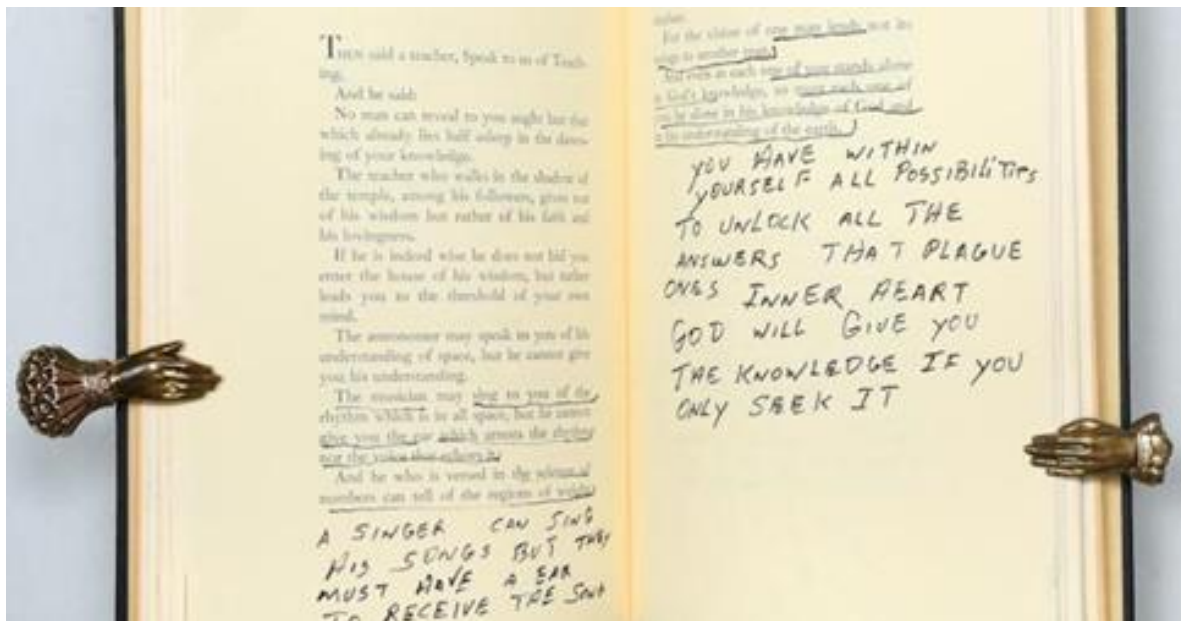 THEN said a teacher, Speak to us of Teach-
ing.
And he said:
No man can reveal to you aught but that
which already lies half asleep in the dawn-
ing of your knowledge.
The teacher who walks in the shadow of
the temple, among his followers, gives not
of his wisdom but rather of his faith and
his lovingness.
If he is indeed wise he does not bid you
enter the house of his wisdom, but rather
leads you to the threshold of your own
mind.
The astronomer may speak to you of his
understanding of space, but he cannot give
you his understanding.
The musician may sing to you of the
rhythm which is in all space, but he cannot
give you the ear which arrests the rhythm
nor the voice that echoes it.
And he who is versed in the science of
numbers can tell of the regions of weight
A SINGER CAN SING
HIS SONGS BUT THEY
MUST HAVE A EAR
TO RECEIVE THE SONG
For the vision of one man lends not its
wings to another man.
And even as each one of you stands alone
God's knowledge, so must each one of
you be alone in his knowledge of God and
his understanding of the earth.
YOU HAVE WITHIN
YOURSELF ALL POSSIBILITIES
TO UNLOCK ALL THE
ANSWERS THAT PLAGUE
ONES INNER HEART
GOD WILL GIVE YOU
THE KNOWLEDGE IF YOU
ONLY SEEK IT